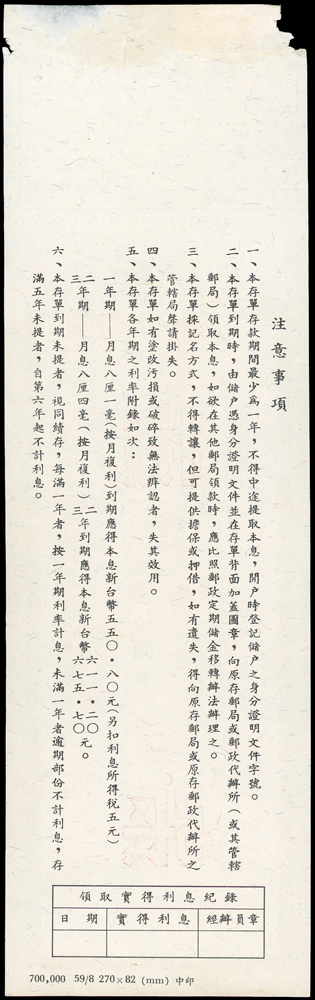 注意事項
一、本存單存款期間最少為一年，不得中途提取本息，開戶時登記儲戶之身分證明文件字號。
二、本存單到期時，由儲戶憑身分證明文件並在存單背面加蓋圖章，向原存郵局或郵政代辦所（或其管轄
郵局）領取本息，如欲在其他郵局領款時，應比照郵政定期儲金移轉辦法辦理之。
三、本存單採記名方式，不得轉讓，但可提供擔保或押借，如有遺失，得向原存郵局或原存郵政代辦所之
管轄局聲請掛失。
四、本存單如有塗改污損或破碎致無法辨認者，失其效用。
五、本存單各年期之利率附錄如次：
一年期——月息八厘一毫（按月複利）到期應得本息新台幣五五〇．八〇元（另扣利息所得稅五元）
二年期
三年期——月息八厘四毫（按月複利）二年到期應得本息新台幣六一一．二〇
三年到期應得本息新台幣六七五．七〇元。
六、本存單到期未提者，視同續存，每滿一年者，按一年期利率計息，未滿一年者逾期部份不計利息，存
滿五年未提者，自第六年起不計利息。
領取實得利息紀錄
日期 實得利息 經辦員章
700,000 59/8 270×82 (mm) 中印